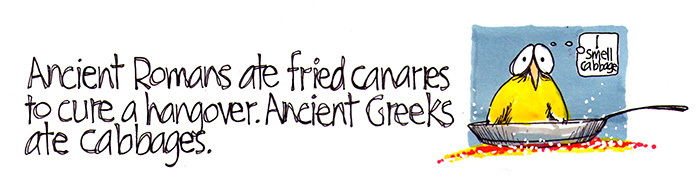 Ancient Romans ate fried canaries
to cure a hangover. Ancient Greeks
ate cabbages.
I
smell
cabbage